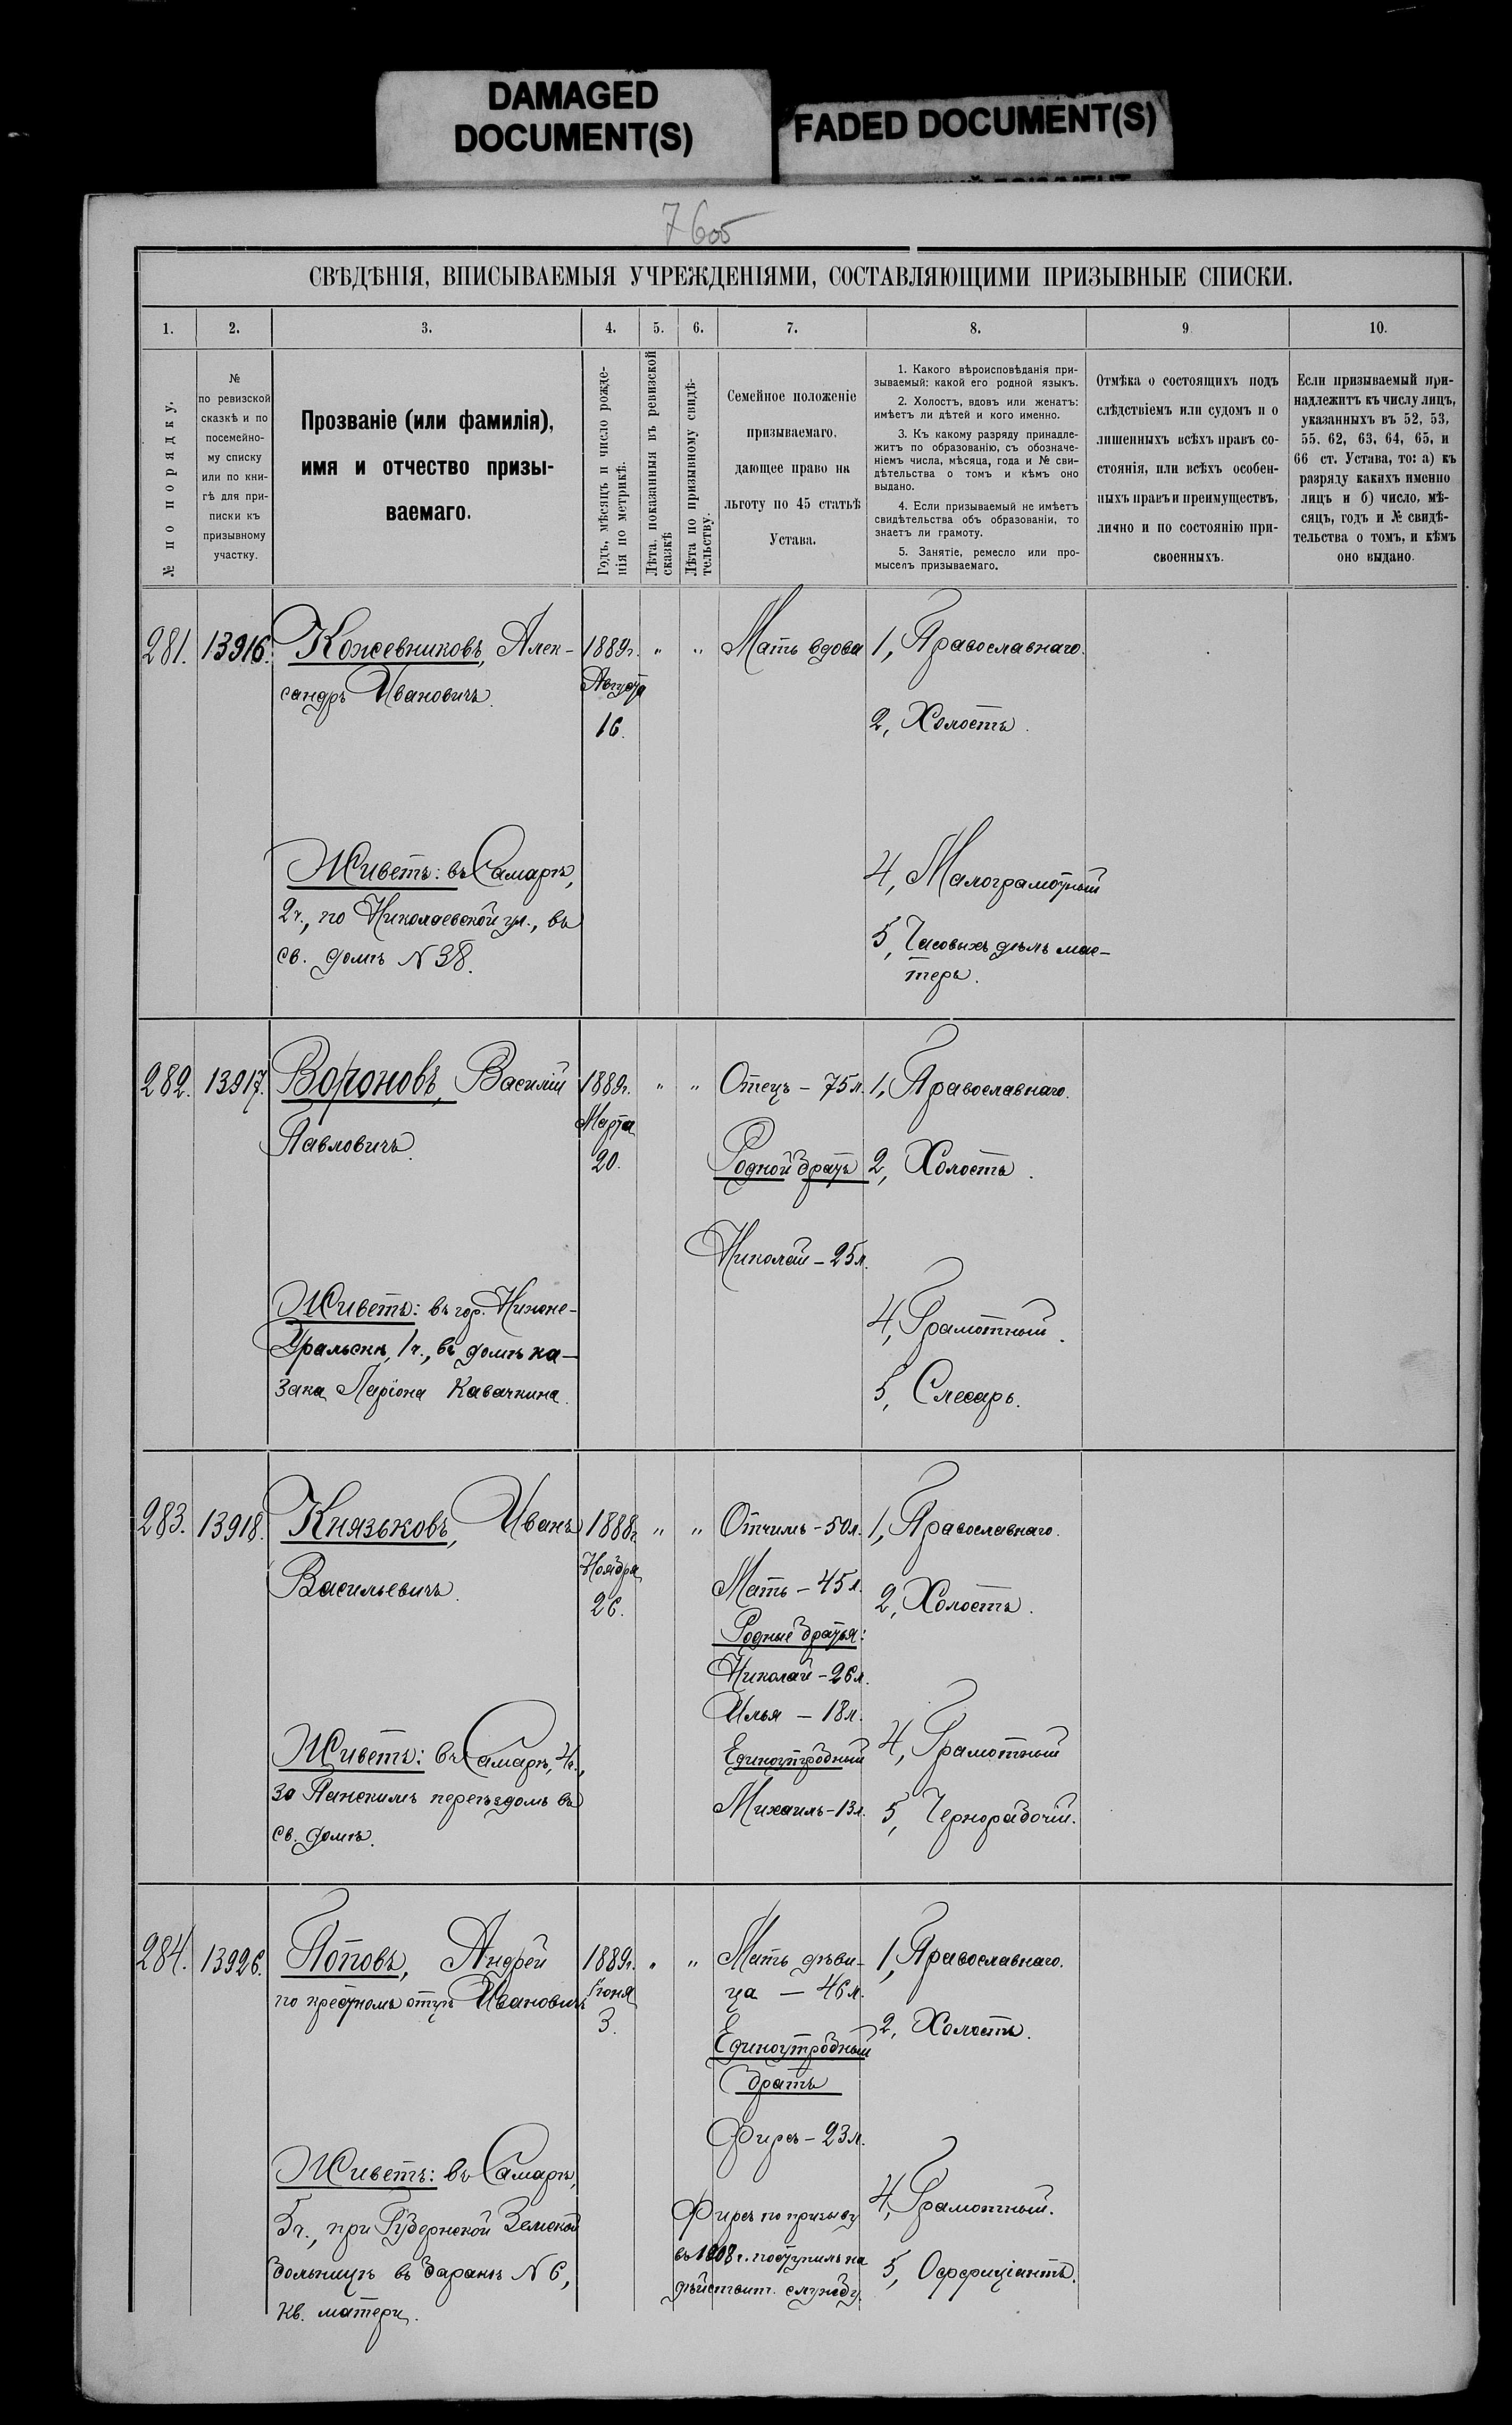 DAMAGED
DOCUMENT(S)
FADED DOCUMENT(S)
СВѢДѢНІЯ, ВПИСЫВАЕМЫЯ УЧРЕЖДЕНІЯМИ, СОСТАВЛЯЮЩИМИ ПРИЗЫВНЫЕ СПИСКИ.
1.
2.
3.
4.
5.
6.
7.
8.
9.
10.
№ по порядку.
№
по ревизской
сказкѣ и по
посемейно-
му списку
или по кни-
гѣ для при-
писки къ
призывному
участку.
Прозваніе (или фамилія),
имя и отчество призы-
ваемаго.
Годъ, мѣсяцъ и число рожде-
нія по метрикѣ.
Лѣта, показанныя въ ревизской
сказкѣ
Лѣта по призывному свидѣ-
тельству.
Семейное положеніе
призываемаго,
дающее право на
льготу по 45 статьѣ
Устава.
1. Какого вѣроисповѣданія при-
зываемый: какой его родной языкъ.
2. Холостъ, вдовъ или женатъ:
имѣетъ ли дѣтей и кого именно.
3. Къ какому разряду принадле-
житъ по образованію, съ обозначе-
ніемъ числа, мѣсяца, года и № сви-
дѣтельства о томъ и кѣмъ оно
выдано.
4. Если призываемый не имѣетъ
свидѣтельства объ образованіи, то
знаетъ ли грамоту.
5. Занятіе, ремесло или про-
мыселъ призываемаго.
Отмѣка о состоящихъ подъ
слѣдствіемъ или судомъ и о
лишенныхъ всѣхъ правъ со-
стоянія, или всѣхъ особен-
ныхъ правъ и преимуществъ,
лично и по состоянію при-
своенныхъ.
Если призываемый при-
надлежитъ къ числу лицъ,
указанныхъ въ 52, 53,
55. 62, 63, 64, 65, и
66 ст. Устава, то: а) къ
разряду какихъ именно
лицъ и б) число, мѣ-
сяцъ, годъ и № свидѣ-
тельства о томъ, и кѣмъ
оно выдано.
281.
13916.
Кожевниковъ, Алек-
сандръ Ивановичъ.
Живетъ: въ Самарѣ,
2ч., по Николаевской ул., въ
св. домѣ N 38.
1889г.
Августа
16.
"
"
Мать вдова
1, Православнаго.
2, Холостъ.
4, Малограмотный
5, Часовыхъ дѣлъ мас-
теръ.
282.
13917.
Вороновъ, Василій
Павловичъ.
Живетъ: въ гор. Нижне-
Уральскѣ, 1ч., въ домѣ ка-
зака Ларіона Кавачкина.
1889г.
Марта
20.
"
"
Отецъ - 75л.
Родной братъ
Николай - 25л.
1, Православнаго.
2, Холостъ.
4, Грамотный.
5, Слесарь.
283.
13918.
Князьковъ, Иванъ
Васильевичъ.
Живетъ: въ Самарѣ, 4ч.,
за Панскимъ переѣздомъ въ
св. домѣ.
1888г.
Ноября
26.
"
"
Отчимъ - 50л.
Мать - 45л.
Родные братья:
Николай - 26л.
Илья - 18л.
Единоутробный
Михаилъ - 13л.
1, Православнаго.
2, Холостъ.
4, Грамотный
5, Чернорабочій.
284.
13926.
Поповъ, Андрей
по крестному отцу Ивановичъ
Живетъ: въ Самарѣ,
5ч., при Губернской Земской
больницѣ въ баракѣ N 6,
кв. матери.
1889г.
Іюня
3.
"
"
Мать дѣви-
ца - 46л.
Единоутробный
братъ
Фирсъ - 23л.
Фирсъ по призыву
въ 1908г. поступилъ на
дѣйствит. службу.
1, Православнаго.
2, Холостъ.
4, Грамотный.
5, Оффиціантъ.